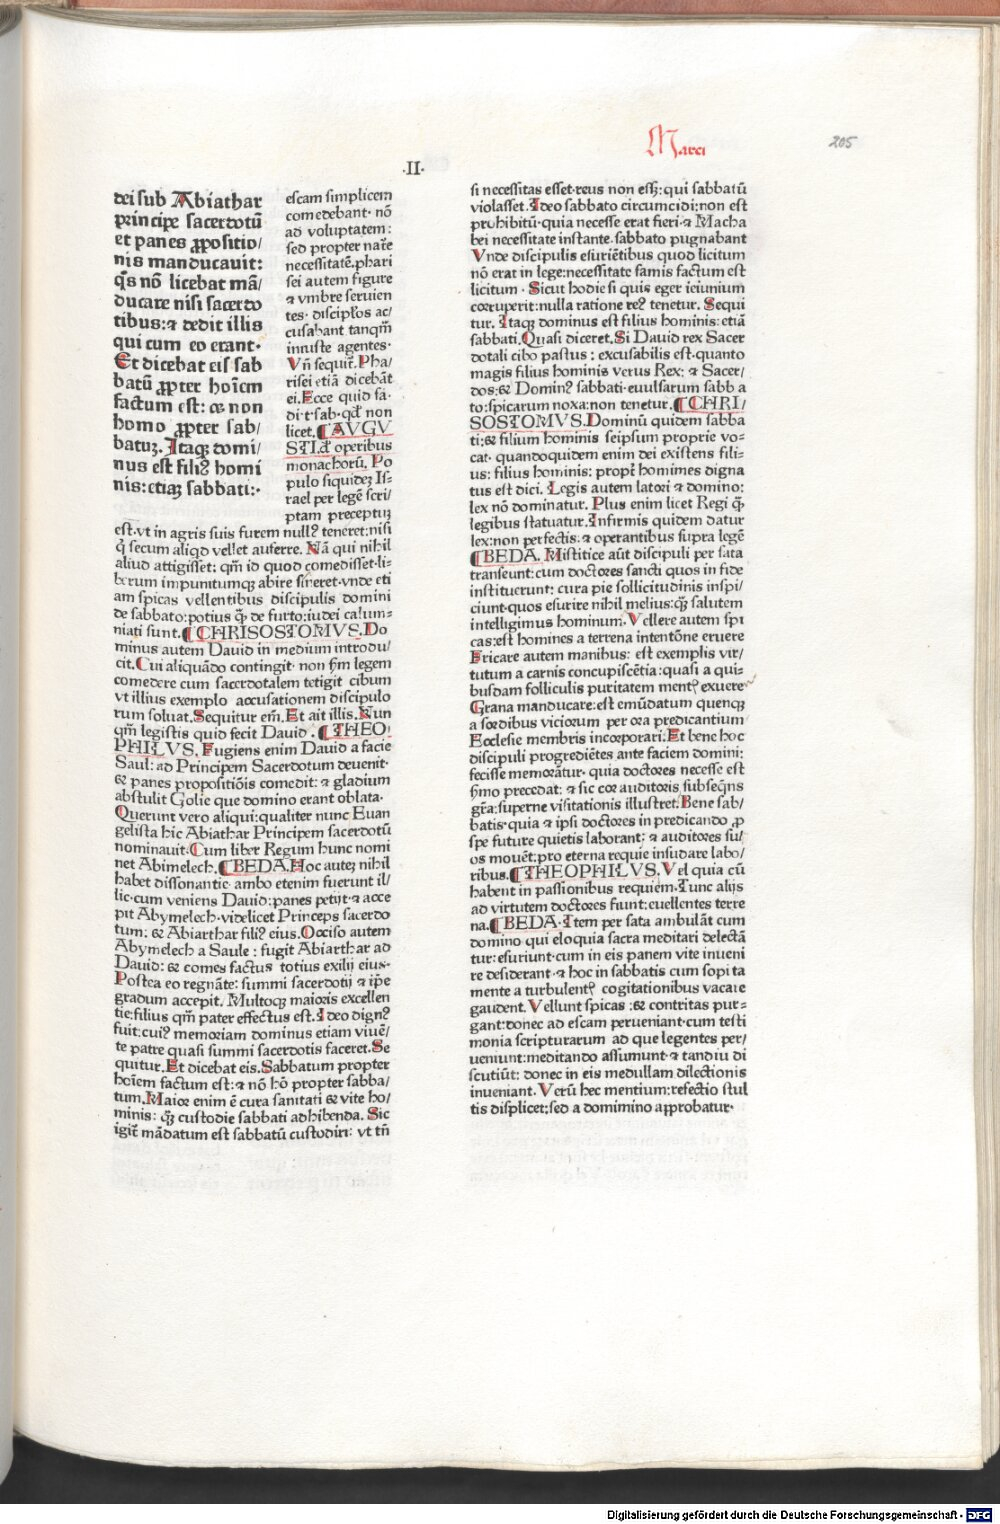 Marci
205
.II.
dei sub Abiathar
principe sacerdotū
et panes ꝓpositio/
nis manducauit:
qͥs nō licebat mā/
ducare nisi sacerdo
tibus:⁊ dedit illis
qui cum eo erant·
Et dicebat eis sab
batū ꝓpter hoīem
factum est: & non
homo ꝓpter sab/
batuꝫ. Itaqꝫ domi/
nus est filiꝰ homi
nis:etiaꝫ sabbati:·
escam simplicem
comedebant· nō
ad voluptatem:
sed propter nar̄e
necessitatē.phari
sei autem figure
⁊ vmbre seruien
tes· discipl̄os ac/
cusabant tanqm̄
iniuste agentes·
Vn̄ sequit̄. Pha/
risei etiā dicebāt
ei.Ecce quid fa·
di·t·sab·qd̓ non
licet.¶AVGV
STI.d̓ operibus
monachorū. Po
pulo siquideꝫ Is=
rael per legē scri/
ptam preceptuꝫ
est.vt in agris suis furem nullꝰ teneret:nisi
q̇ secum aliqd vellet auferre. Nā qui nihil
aliud attigisset: qm̄ id quod comedisset·li=
berum impunitumqꝫ abire sineret·vnde eti
am spicas vellentibus discipulis domini
de sabbato:potius qꝫ̄ de furto:iudei calum=
niati sunt.¶CHRISOSTOMVS.Do
minus autem Dauid in medium introdu/
cit.Cui aliquādo contingit· non ẜm legem
comedere cum sacerdotalem tetigit cibum
vt illius exemplo accusationem discipulo
rum soluat.Sequitur em̄.Et ait illis.Nun
qm̄ legistis quid fecit Dauid.¶THEO/
PHILVS.Fugiens enim Dauid a facie
Saul: ad Principem Sacerdotum deuenit·
& panes propositiōis comedit: ⁊ gladium
abstulit Golie que domino erant oblata·
Querunt vero aliqui:qualiter nunc Euan
gelista hic Abiathar Principem sacerdotū
nominauit:Cum liber Regum hunc nomi
net Abimelech.¶BEDA.Hoc auteꝫ nihil
habet dissonantie· ambo etenim fuerunt il/
lic·cum veniens Dauid:panes petijt·⁊ acce
pit Abymelech·videlicet Princeps sacerdo
tum: & Abiarthar filiꝰ eius.Occiso autem
Abymelech a Saule : fugit Abiarthar ad
Dauid: & comes factus totius exilij eius·
Postea eo regnāte: summi sacerdotij ⁊ ip̄e
gradum accepit. Multoqꝫ maioris excellen
tie:filius qm̄ pater effectus est.Ideo dignꝰ
fuit:cuiꝰ memoriam dominus etiam viuē/
te patre quasi summi sacerdotis faceret.Se
quitur.Et dicebat eis.Sabbatum propter
hoīem factum est:⁊ nō hō propter sabba/
tum.Maior enim ē cura sanitati & vite ho/
minis: qꝫ̄ custodie sabbati adhibenda. Sic
igit̄ mādatum est sabbatū custodiri: vt tn̄
si necessitas esset·reus non ess̄: qui sabbatū
violasset.Ideo sabbato circumcidi:non est
prohibitū·quia necesse erat fieri·⁊ Macha
bei necessitate instante·sabbato pugnabant
Vnde discipulis esuriētibus quod licitum
nō erat in lege:necessitate famis factum est
licitum · Sicut hodie si quis eger ieiunium
corruperit:nulla ratione reꝰ tenetur. Sequi
tur. Itaqꝫ dominus est filius hominis: etiā
sabbati.Quasi diceret.Si Dauid rex Sacer
dotali cibo pastus : excusabilis est·quanto
magis filius hominis verus Rex: ⁊ Sacer/
dos:& Dominꝰ sabbati·euulsarum sabb a
to:spicarum noxa:non tenetur.¶CHRI/
SOSTOMVS.Dominū quidem sabba
ti:& filium hominis seipsum proprie vo=
cat· quandoquidem enim dei existens fili=
us: filius hominis: propt̄ homimes digna
tus est dici. Legis autem latori ⁊ domino:
lex nō dominatur. Plus enim licet Regi qꝫ̄
legibus statuatur.Infirmis quidem datur
lex:non perfectis:⁊ operantibus supra legē
¶BEDA. Mistitice aūt discipuli per sata
transeunt:cum doctores sancti quos in fide
instituerunt: cura pie sollicitudinis inspi/
ciunt·quos esurire nihil melius:qꝫ̄ salutem
intelligimus hominum.Vellere autem spi
cas:est homines a terrena intentōne eruere
Fricare autem manibus: est exemplis vir/
tutum a carnis concupiscētia:quasi a qui=
busdam folliculis puritatem mentꝭ exuere
Grana manducare:est emūdatum quenqꝫ
a sordibus viciorum per ora predicantium
Ecclesie membris incorporari.Et bene hoc
discipuli progrediētes ante faciem domini:
fecisse memorātur· quia doctores necesse est
ẜmo precedat: ⁊ sic cor auditoris subseq̄ns
gr̄a:superne visitationis illustret.Bene sab/
batis·quia ⁊ ipsi doctores in predicando ꝓ
spe future quietis laborant: ⁊ auditores su/
os mouēt:pro eterna requie insudare labo/
ribus.¶THEOPHILVS.Vel quia cū
habent in passionibus requiem·Tunc alijs
ad virtutem doctores fiunt:euellentes terre
na.¶BEDA·Item per sata ambulāt cum
domino qui eloquia sacra meditari delectā
tur:esuriunt·cum in eis panem vite inueni
re desiderant·⁊ hoc in sabbatis cum sopi ta
mente a turbulentꝭ cogitationibus vacare
gaudent.Vellunt spicas :& contritas pur=
gant:donec ad escam perueniant·cum testi
monia scripturarum ad que legentes per/
ueniunt:meditando assumunt·⁊ tandiu di
scutiūt: donec in eis medullam dilectionis
inueniant. Verū hec mentium:refectio stul
tis displicet:sed a domimino approbatur·
Digitalisierung gefördert durch die Deutsche Forschungsgemeinschaft - DFG